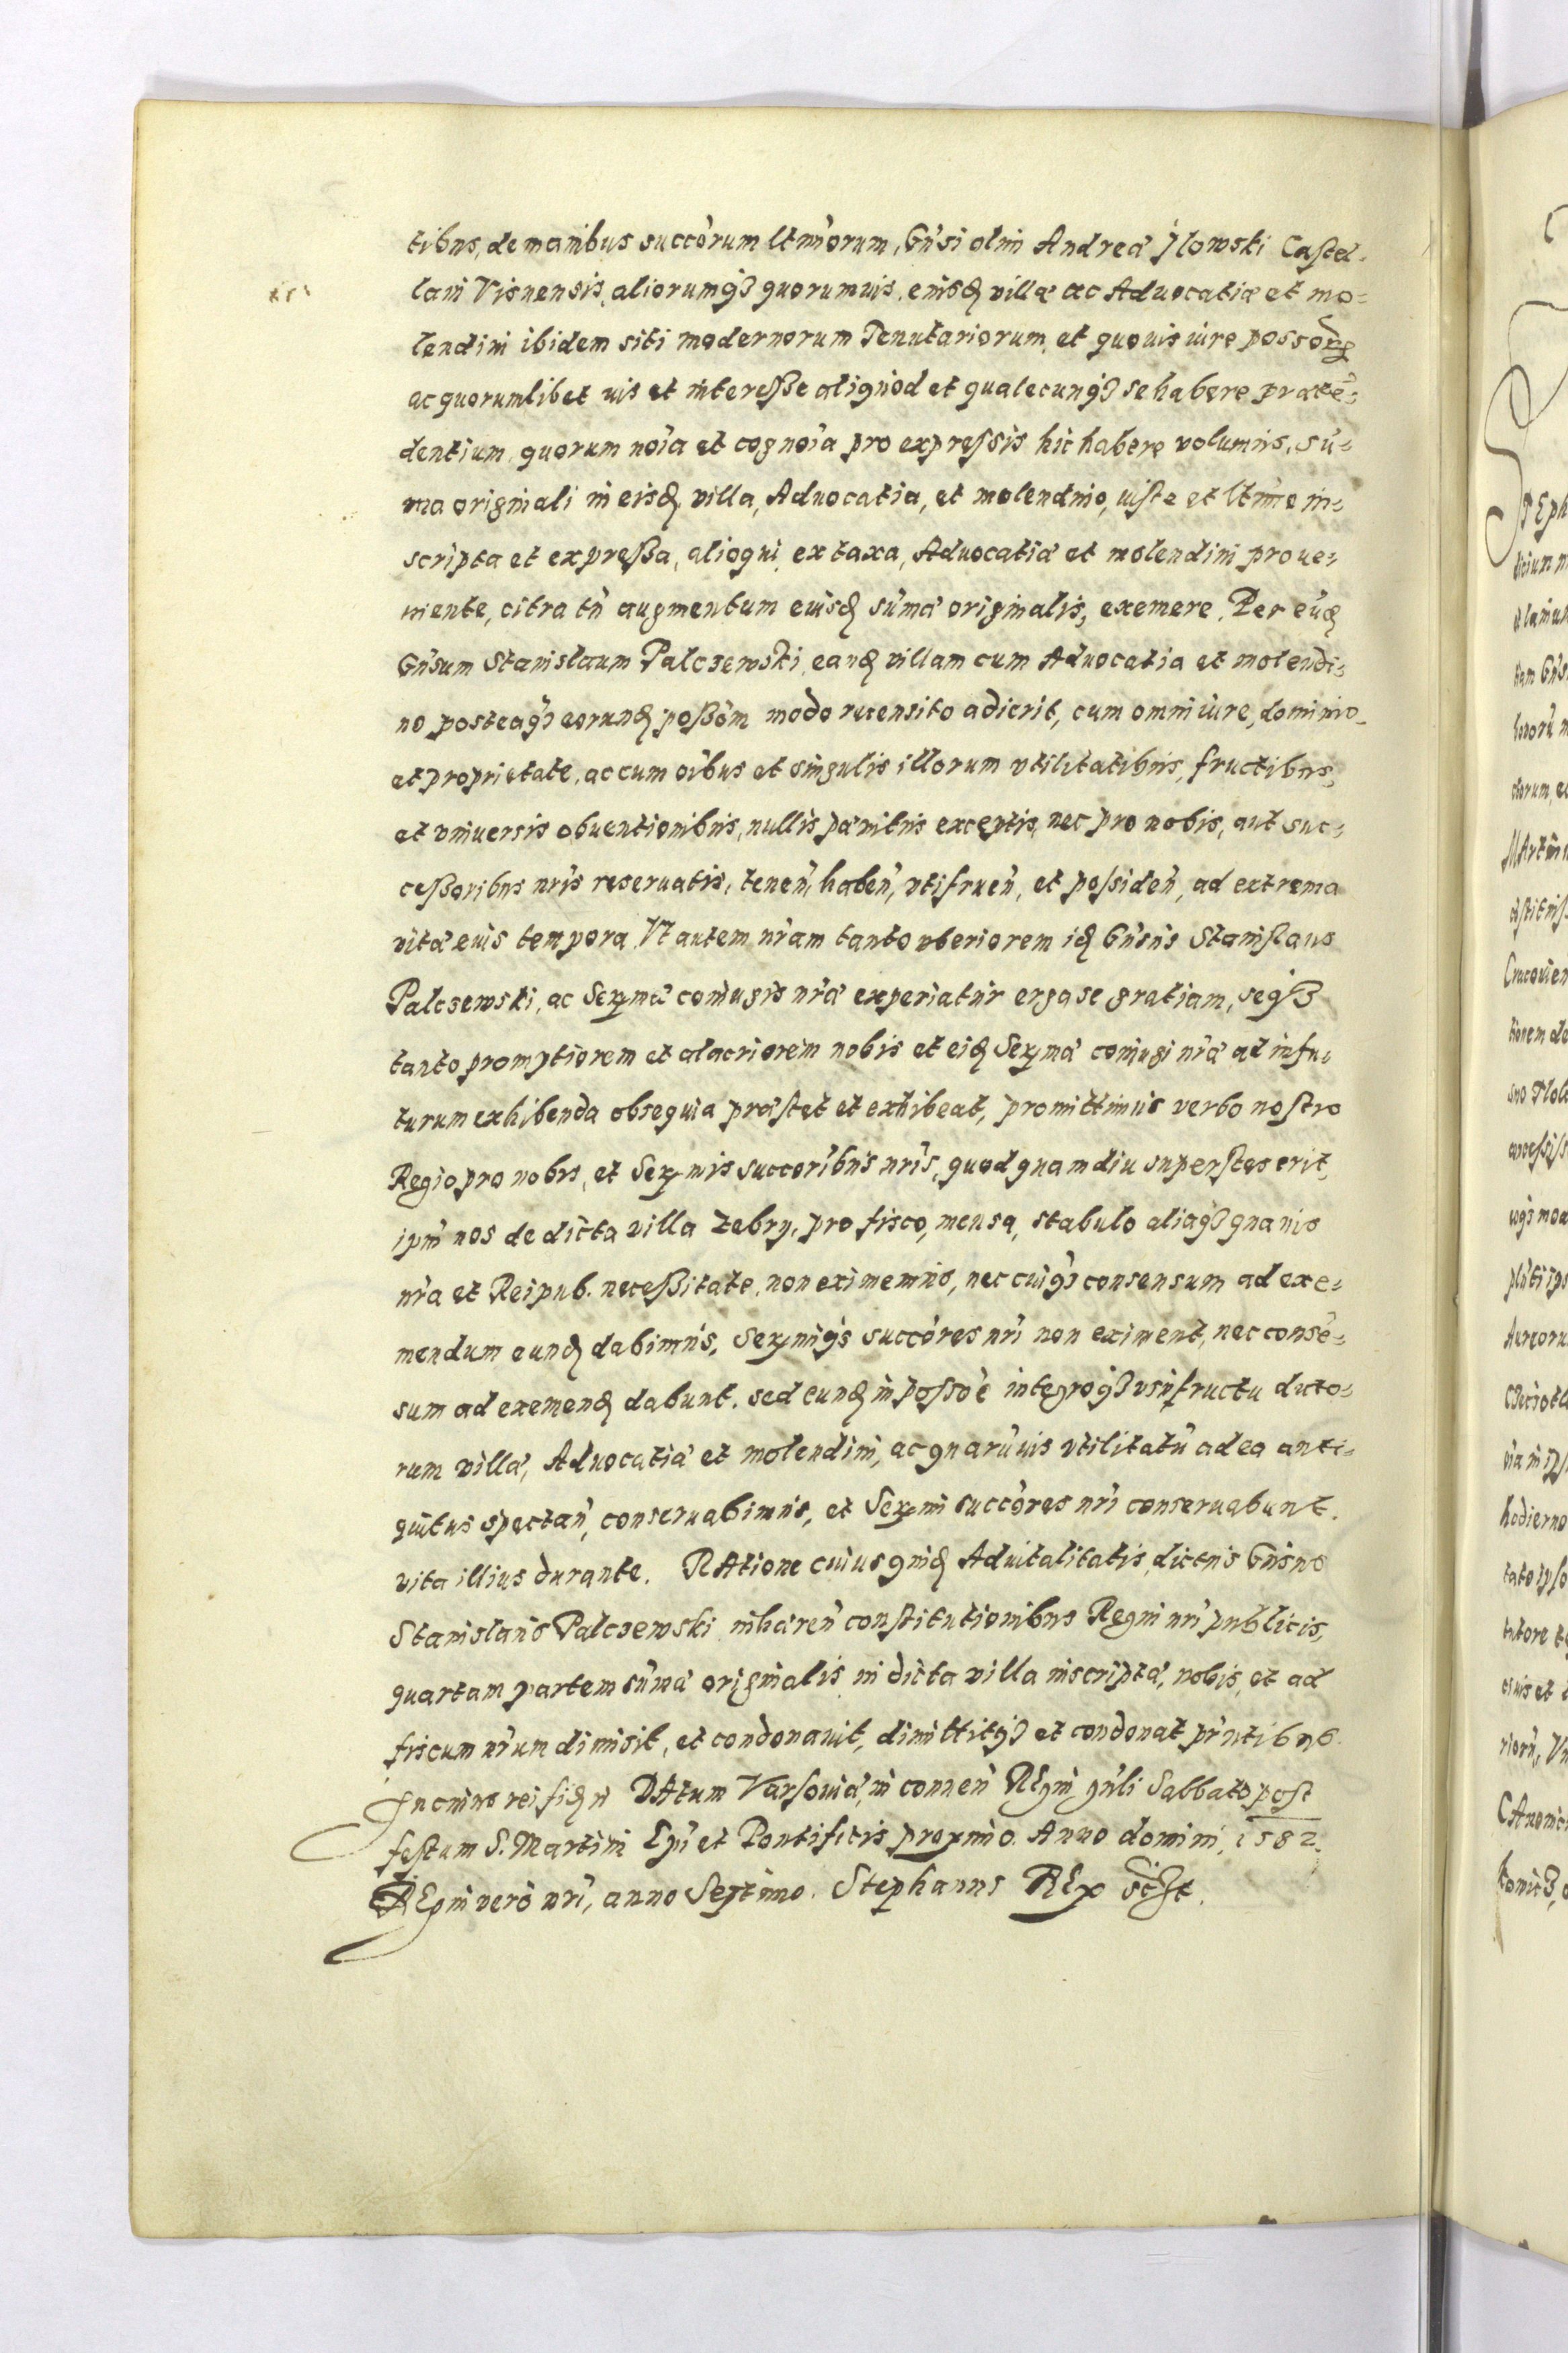 tibus, de manibus succorum ltmorum, Gnsi olim Andreae Jlowski Castel-
lani Visnensis, aliorumq3 quorumuis, eiusd villae ac Aduocatiae et mo-
lendini ibidem siti modernorum Tenutariorum, et quouis iure possor
ac quorumlibet uis et interesse aliquod et qualecunq3 se habere praetē-
dentium, quorum noia et cognoia pro expressis hic habere volumus, sū-
ma originali in eisd villa, Aduocatia, et molendino, iuste et ltime in-
scripta et expressa, alioqui, ex taxa, Aduocatiae et molendini proue-
niente, citra tn augmentum eiusd sumae originalis, exemere. Per eūd
Gnsum Stanislaum Palczewski, eand villam cum Aduocatia et molendi-
no posteaq3 eorund possom modo recensito adierit, cum omni iure, dominio
et proprietate, ac cum oibus et singulis illorum vtilitatibus, fructibus,
et vniuersis obuentionibus, nullis paenitus exceptis, nec pro nobis, aut suc-
cessoribus nris reseruatis, tenen, haben, vtifruen, et possiden, ad extrema
vitae eius tempora. Vt autem nram tanto vberiorem id Gnsus Stanislaus
Palczewski, ac Serma coniugis nrae experiatur erga se gratiam, seq3
tanto promptiorem et alacriorem nobis et eid Sermae coniugi nrae ad infu-
turum exhibenda obsequia praestet et exhibeat, promittimus verbo nostro
Regio pro nobis, et Sermis succoribus nris, quod quamdiu superstes erit,
ipm nos de dicta villa Zebry, pro fisco, mensa, stabulo aliaq3 quauis
nra et Reipub. necessitate, non eximemus, nec cuiq3 consensum ad exe-
mendum eund dabimus, Sermiq3 succores nri non eximent, nec consē-
sum ad exemend dabunt. sed eund in possoe integroq3 vsufructu dicto-
rum villae, Aduocatiae et molendini, ac quarūuis vtilitatū ad ea anti-
quitus spectan, conseruabimus, et Sermi succores nri conseruabunt.
vita illius durante. RAtione cuius quid Aduitalitatis, dictus Gnsus
Stanislaus Palczewski inhaeren constitutionibus Regni nri publicis,
quartam partem sumae originalis in dicta villa inscriptae, nobis, et ad
fiscum nrum dimisit, et condonauit, dimittitq3 et condonat pntibus.
In cuius rei fid n DAtum Varsouiae, in conuen REgni gnli Sabbato post
festum S. Martini Epi et Pontificis proximo. Anno domini, 1582.
REgni vero nri, anno Septimo. Stephanus REx sst.